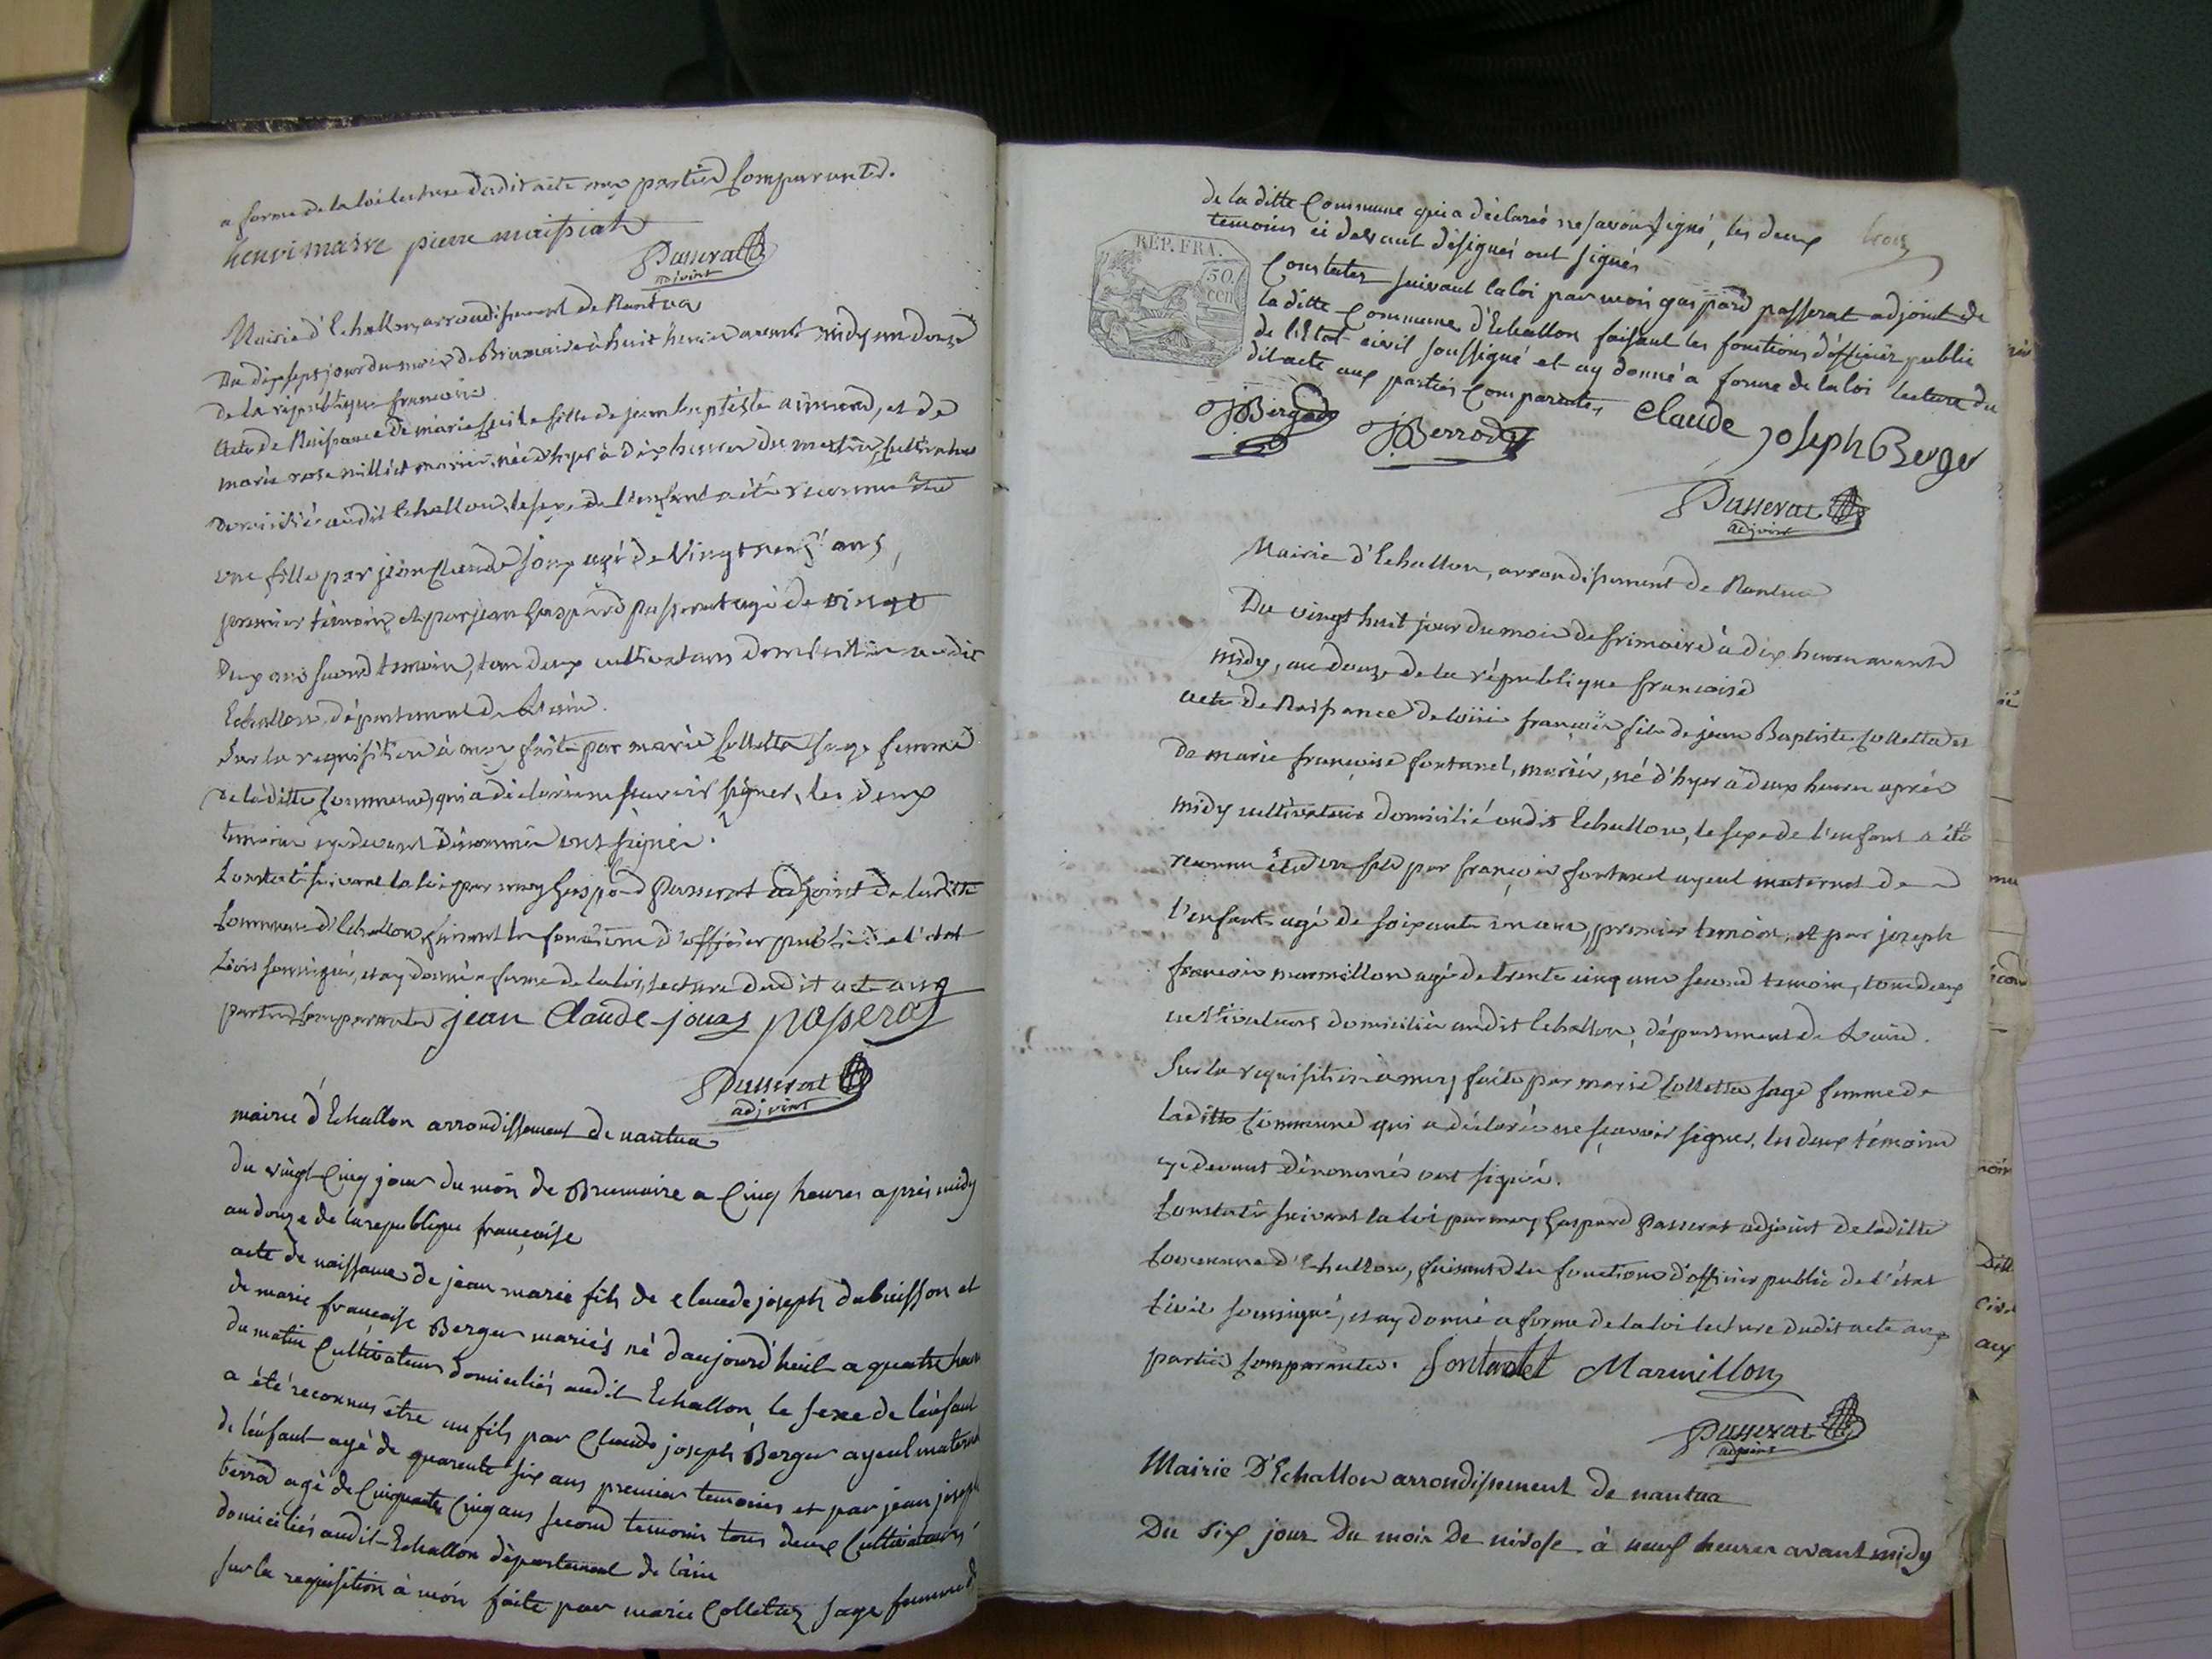 a forme de la loi lecture dudit acte aux parties Comparantes.
henri maire pierre maissiat
Passerat
adjoint
Mairie d'Echallon, arrondissement de Nantua
Du dix sept jour du mois de Brumaire à huit heures avant midy an douze
de la république françoise
Acte de Naissance de marie fille de jean baptiste aimard, et de
marie rose milliet mariés, née d'hyer à dix heures du matin, Cultivateurs
Domiciliés audit Echallon, le sexe de l'enfant a été reconnu être
une fille par jean Claude joux agé de Vingt neuf ans,
premier témoin, et par jean Gaspard Passerat agé de vingt
Deux ans second temoin, tous deux cultivateurs domiciliés audit
Echallon, département de L'ain.
Sur la requisition à moy faite par marie Colletta sage femme
de laditte Commune, qui a déclaré ne scavoir signer, les deux
temoins cy devant dénommés ont signés.
Constaté suivant la loi par moy Gaspard Passerat adjoint de laditte
Commune d'Echallon, faisant les fonctions d'officier public de l'état
Civil soussigné, et ay donné a forme de la loi, lecture dudit acte aux
parties Comparantes jean Claude joux passerat
Passerat
adjoint
mairie d'Echallon arrondissement de nantua
du vingt Cinq jour du mois de Brumaire a Cinq heures après midy
an douze de la republique françoise
acte de naissance de jean marie fils de claude joseph dubuisson et
de marie françoise Berger mariés né d'aujourd'huit a quatre heures
du matin Cultivateurs domiciliés audit Echallon, le sexe de l'enfant
a été reconnus être un fils par Claude joseph Berger ayeul maternel
de l'enfant agé de quarente six ans premier temoins et par jean joseph
berrod agé de Cinquante Cinq ans second temoins tous deux Cultivateurs
domiciliés audit Echallon département de l'ain
sur la requisition à moi faite par marie Collettaz sage femme de
de la ditte Commune qui a déclaré ne savoir signé, les deux
temoins ci devant désignés ont signés
REP. FRA.
50.
cen
Constater suivant la loi par moi gaspard passerat adjoint de
la ditte Commune d'Echallon faisant les fonctions d'officier public
de l'Etat civil soussigné et ay donné a forme de la loi lecture du
dit acte aux parties Comparentes Claude joseph Berger
JBerrod
Passerat
adjoint
Mairie d'Echallon, arrondissement de Nantua
Du vingt huit jour du mois de frimaire à dix heures avant
midy, an douze de la république françoise
acte de Naissance de loüis françois fils de jean Baptiste Colletta et
de marie françoise fontanel, mariés, né d'hyer à deux heures après
midy cultivateurs domicilié audit Echallon, le sexe de l'enfant a été
reconnu être un fils par françois fontanel ayeul maternel de
l'enfant agé de soixante un ans, premier temoin, et par joseph
françois marmillon agé de trente cinq ans second temoin, tous deux
cultivateurs domiciliés audit Echallon, département de L'ain.
Sur la requisition à moy faite par marie Colletta sage femme de
laditte Commune qui a déclaré ne sçavoir signer, les deux témoins
cy devant dénommés ont signés.
Constaté suivant la loi par moy Gaspard Passerat adjoint de laditte
Commune d'Echallon, faisant les fonctions d'officier public de l'état
Civil soussigné, et ay donné a forme de la loi lecture dudit acte aux
parties Comparantes. fontanel Marmillon
Passerat
adjoint
Mairie D'Echallon arrondissement de nantua
Du Six jour Du mois De nivose à neuf heures avant midy